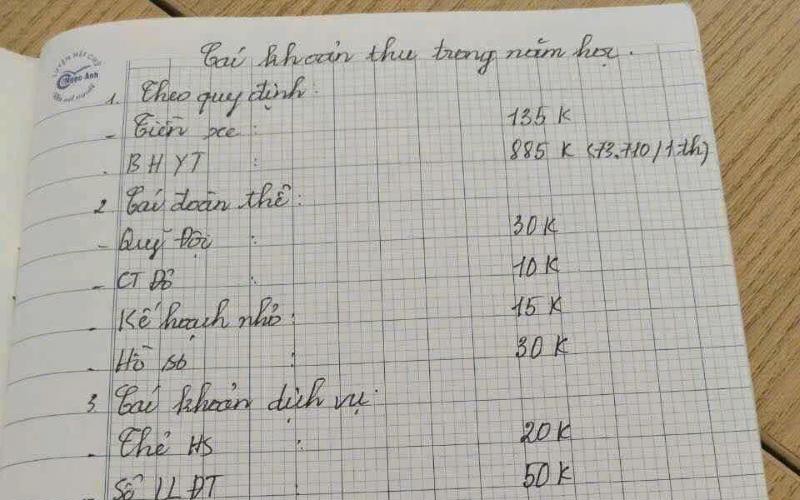 Các khoản thu trong năm học.
1. Theo quy định:
- Tiền xe: 135 K
- BHYT : 885 K (73.710/1th)
2. Các đoàn thể:
- Quỹ Đội : 30K
- CT Đỏ : 10K
- Kế hoạch nhỏ: 15 K
- Hồ sơ : 30K
3. Các khoản dịch vụ:
- Thẻ HS : 20K
Sổ LLĐT 50K
Ngọc Ánh